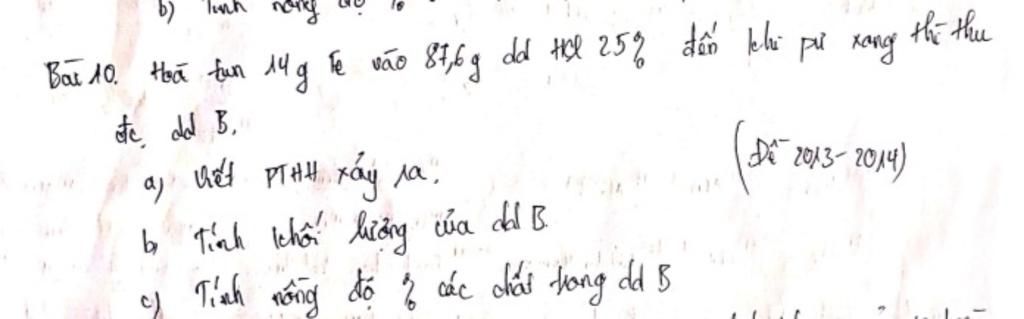 b) Tính nồng độ %
Bài 10. Hoà tan 14g Fe vào 87,6g dd HCl 25% đến khi pư xong thì thu
đc dd B.
(Đề 2013-2014)
a) Viết PTHH xảy ra.
b, Tính khối lượng của dd B.
c) Tính nồng độ % các chất trong dd B